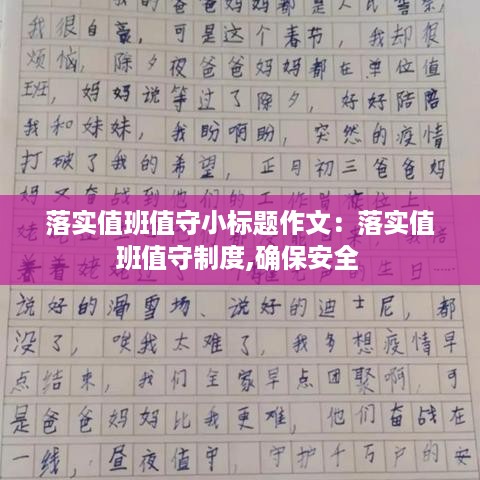 我的爸爸妈妈都是人民警察,
我很自豪,可是这个春节,我却很
烦恼,除夕夜爸爸妈妈都在单位值
班,妈妈说等过了除夕,好好陪陪
我和妹妹,我盼啊盼,突然的疫情
打破了我的希望,正月初三爸爸妈
妈又奋战在
落实值班值守小标题作文：落实值
班值守制度,确保安全
说好的滑雪场、说好的迪士尼,都
没了,唉我太难了,我多想疫情早
点结束,我们全家早点团聚啊,可
是爸爸妈妈比我更难,他们奋战在
一线,昼夜值守,守护千万户的安